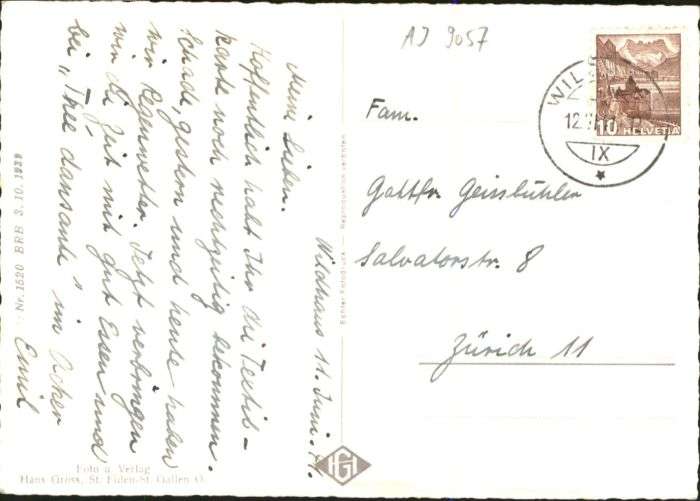 Wildhaus 11. Juni. 41.
Meine Lieben.
Hoffentlich habt Ihr die Textil-
karte noch rechtzeitig bekommen.
Schade, gestern und heute haben
wir Regenwetter. Jetzt verbringen
wir die Zeit mit gut Essen und
bei „Thee dansants" im Acker
Emil
AJ 9057
Fam.
Gottfr. Geissbühler
Salvatorstr. 8
Zürich 11
WILD
12.
IX
10 HELVETIA
Echter Fotodruck — Reproduktion verboten
Nr. 1520 BRB 3.10.1939
Foto u. Verlag
Hans Gross, St. Fiden-St. Gallen O.
HG